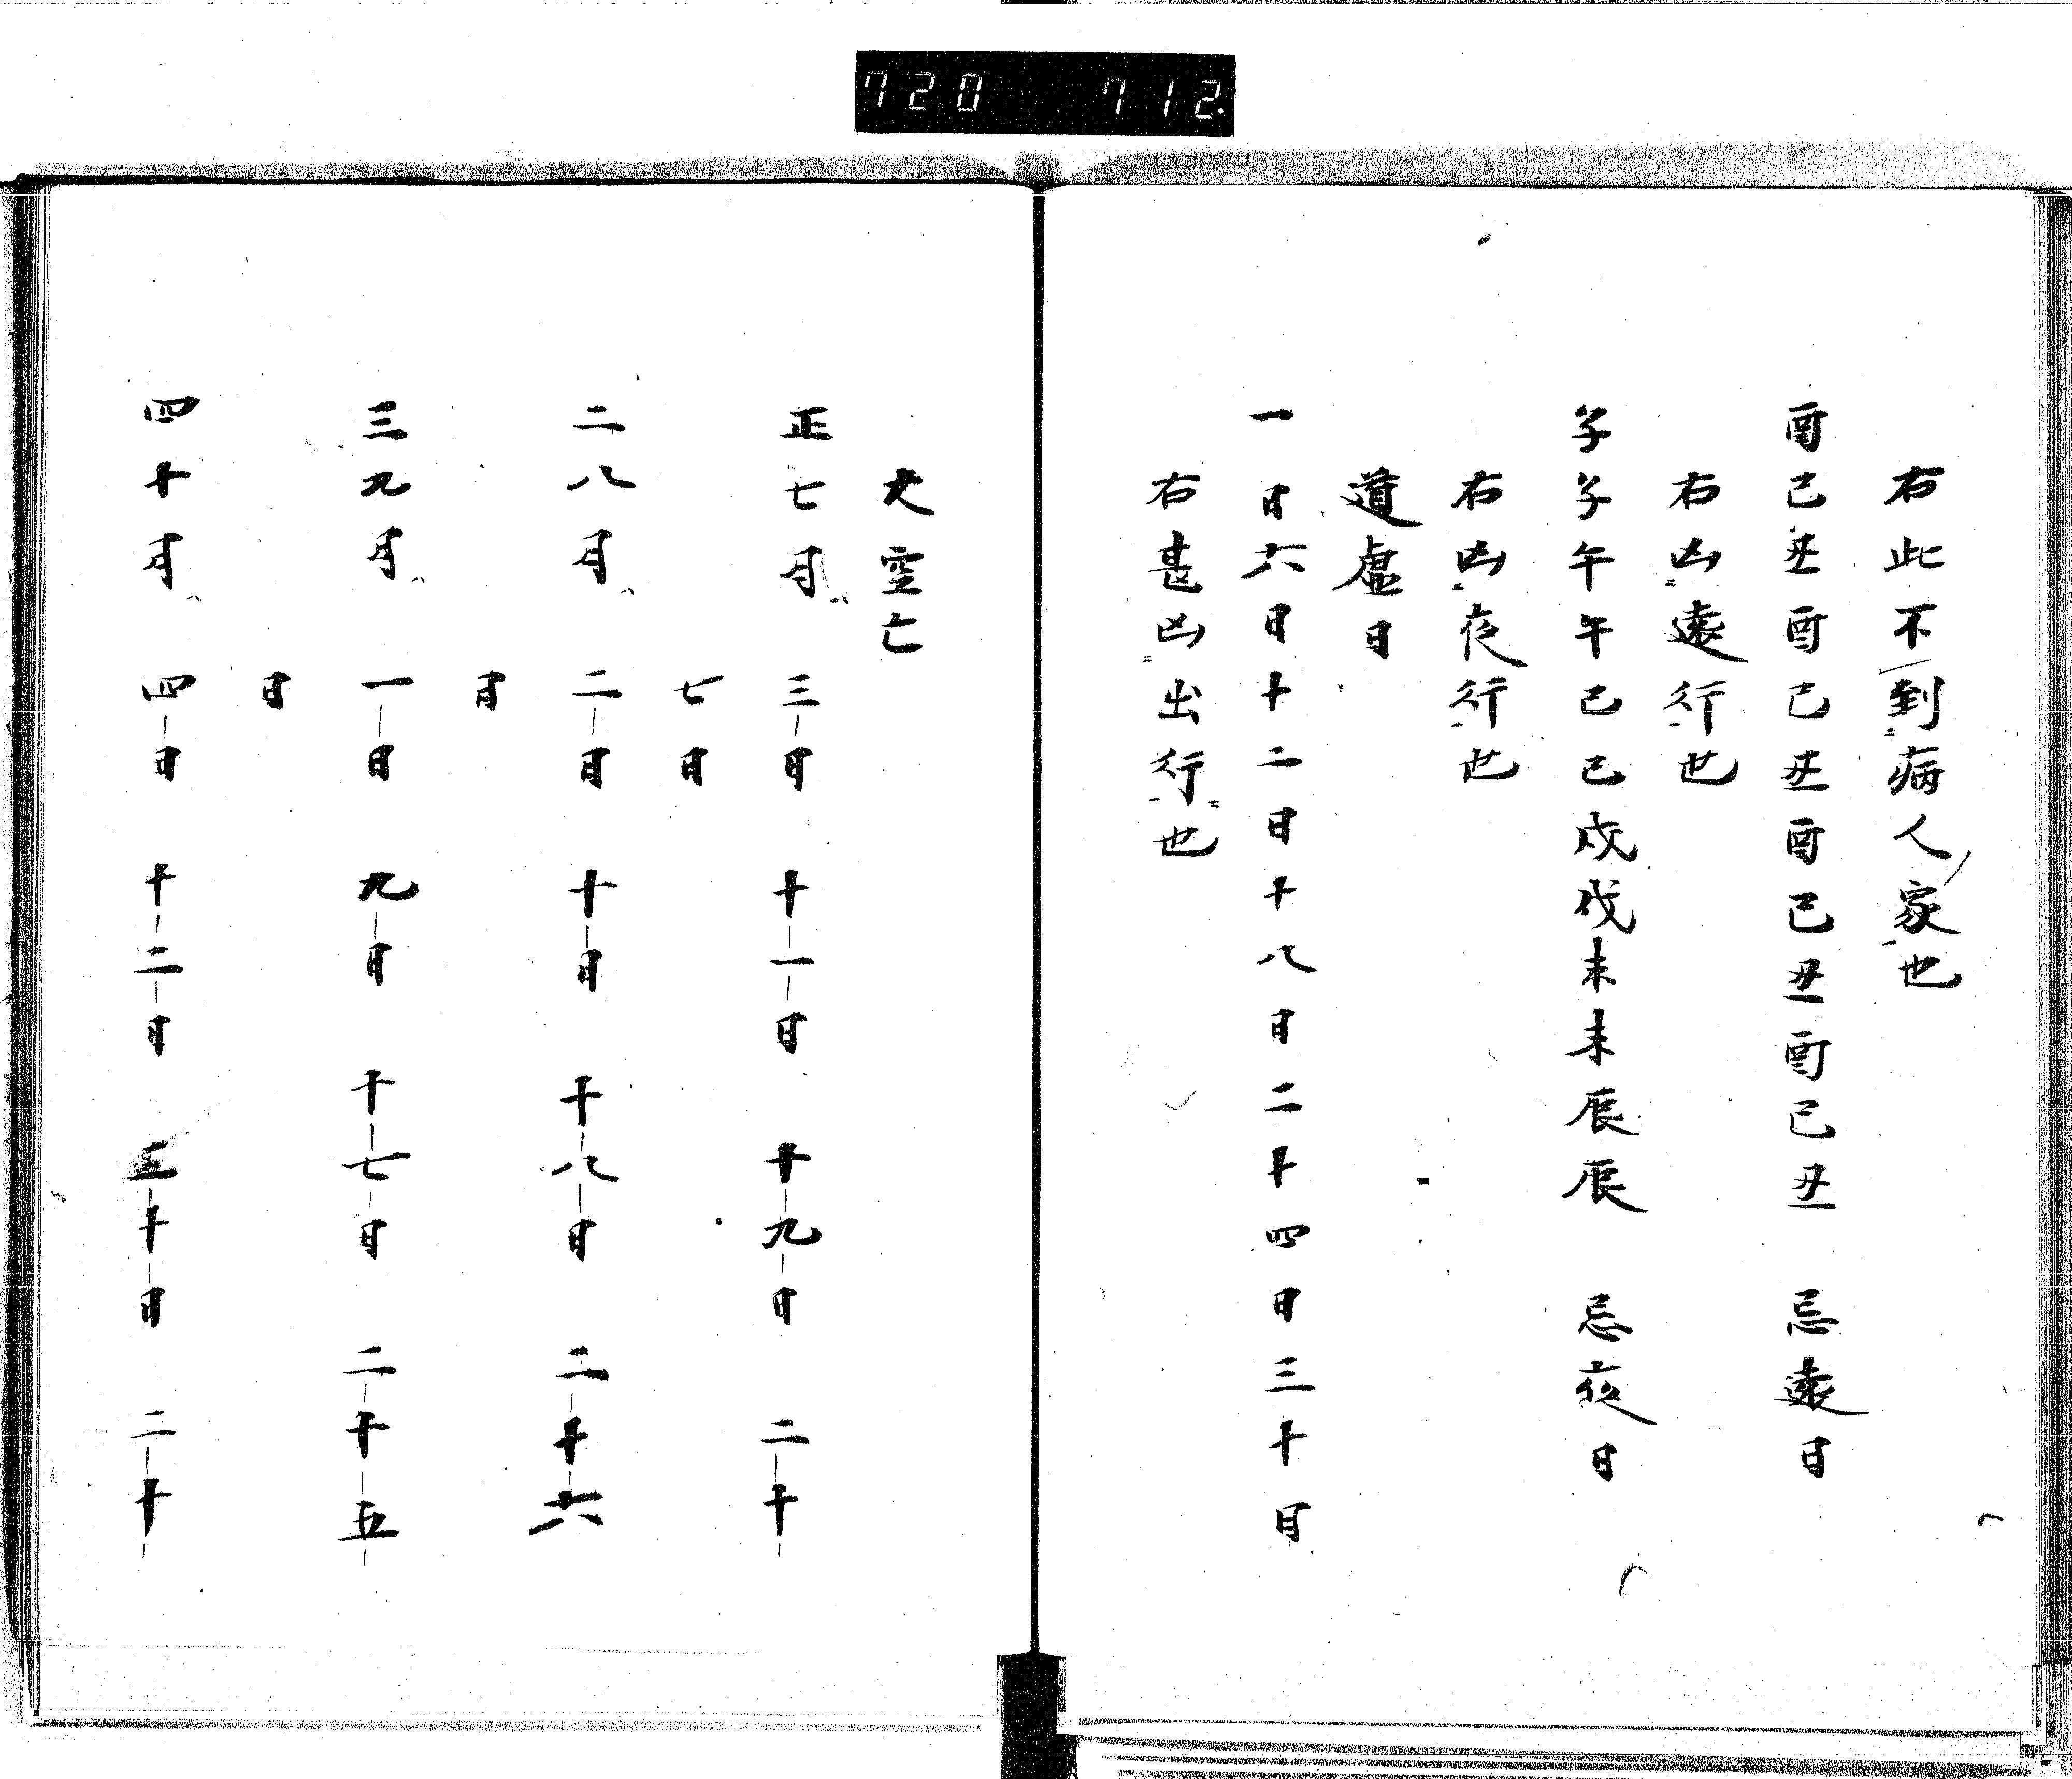 720 712.
右此不到病人家也
酉巳丑酉巳丑酉巳丑酉巳丑 忌遠日
右凶遠行也
子子午午巳巳戌戌未未辰辰 忌夜日
右凶夜行也
道虚日
一日六日十二日十八日二十四日三十日
右甚凶出行也
大空亡
正七月 三日 十一日 十九日 二十
七日
二八月 二日 十日 十八日 二十六
日
三九月 一日 九日 十七日 二十五
日
四十月 四日 十二日 三十日 二十